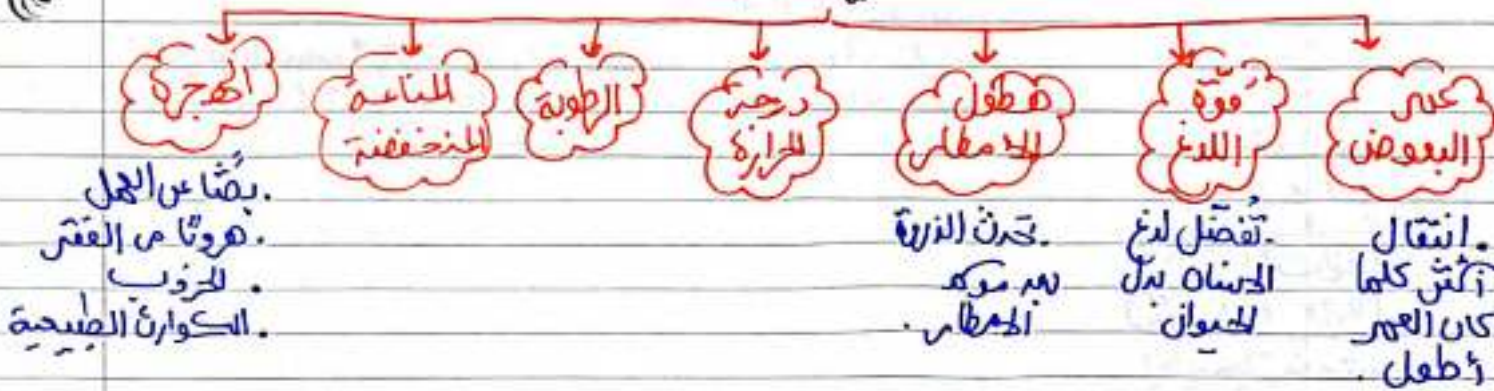 عمر
البعوض
قوّة
اللدغ
هطول
الأمطار
درجة
الحرارة
الرطوبة
المناعة
المنخفضة
الهجرة
. انتقال
أكثر كلما
كان العمر
أطول .
. تُفضّل لدغ
الإنسان بدل
الحيوان
. تحدث الذروة
بعد موسم
الأمطار .
. بحثًا عن العمل
. هروبًا من الفقر
. الحروب
. الكوارث الطبيعية